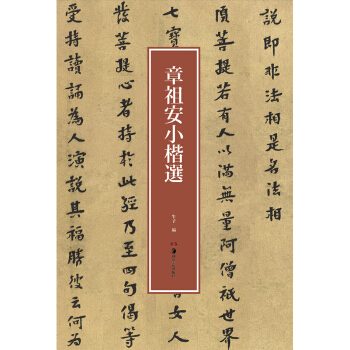 說即非法相是名法相
須菩提若有人以滿無量阿僧祇世界
七寶
女人
發菩提心者持於此經乃至四句偈等
受持讀誦為人演說其福勝彼云何為
章祖安小楷選
編